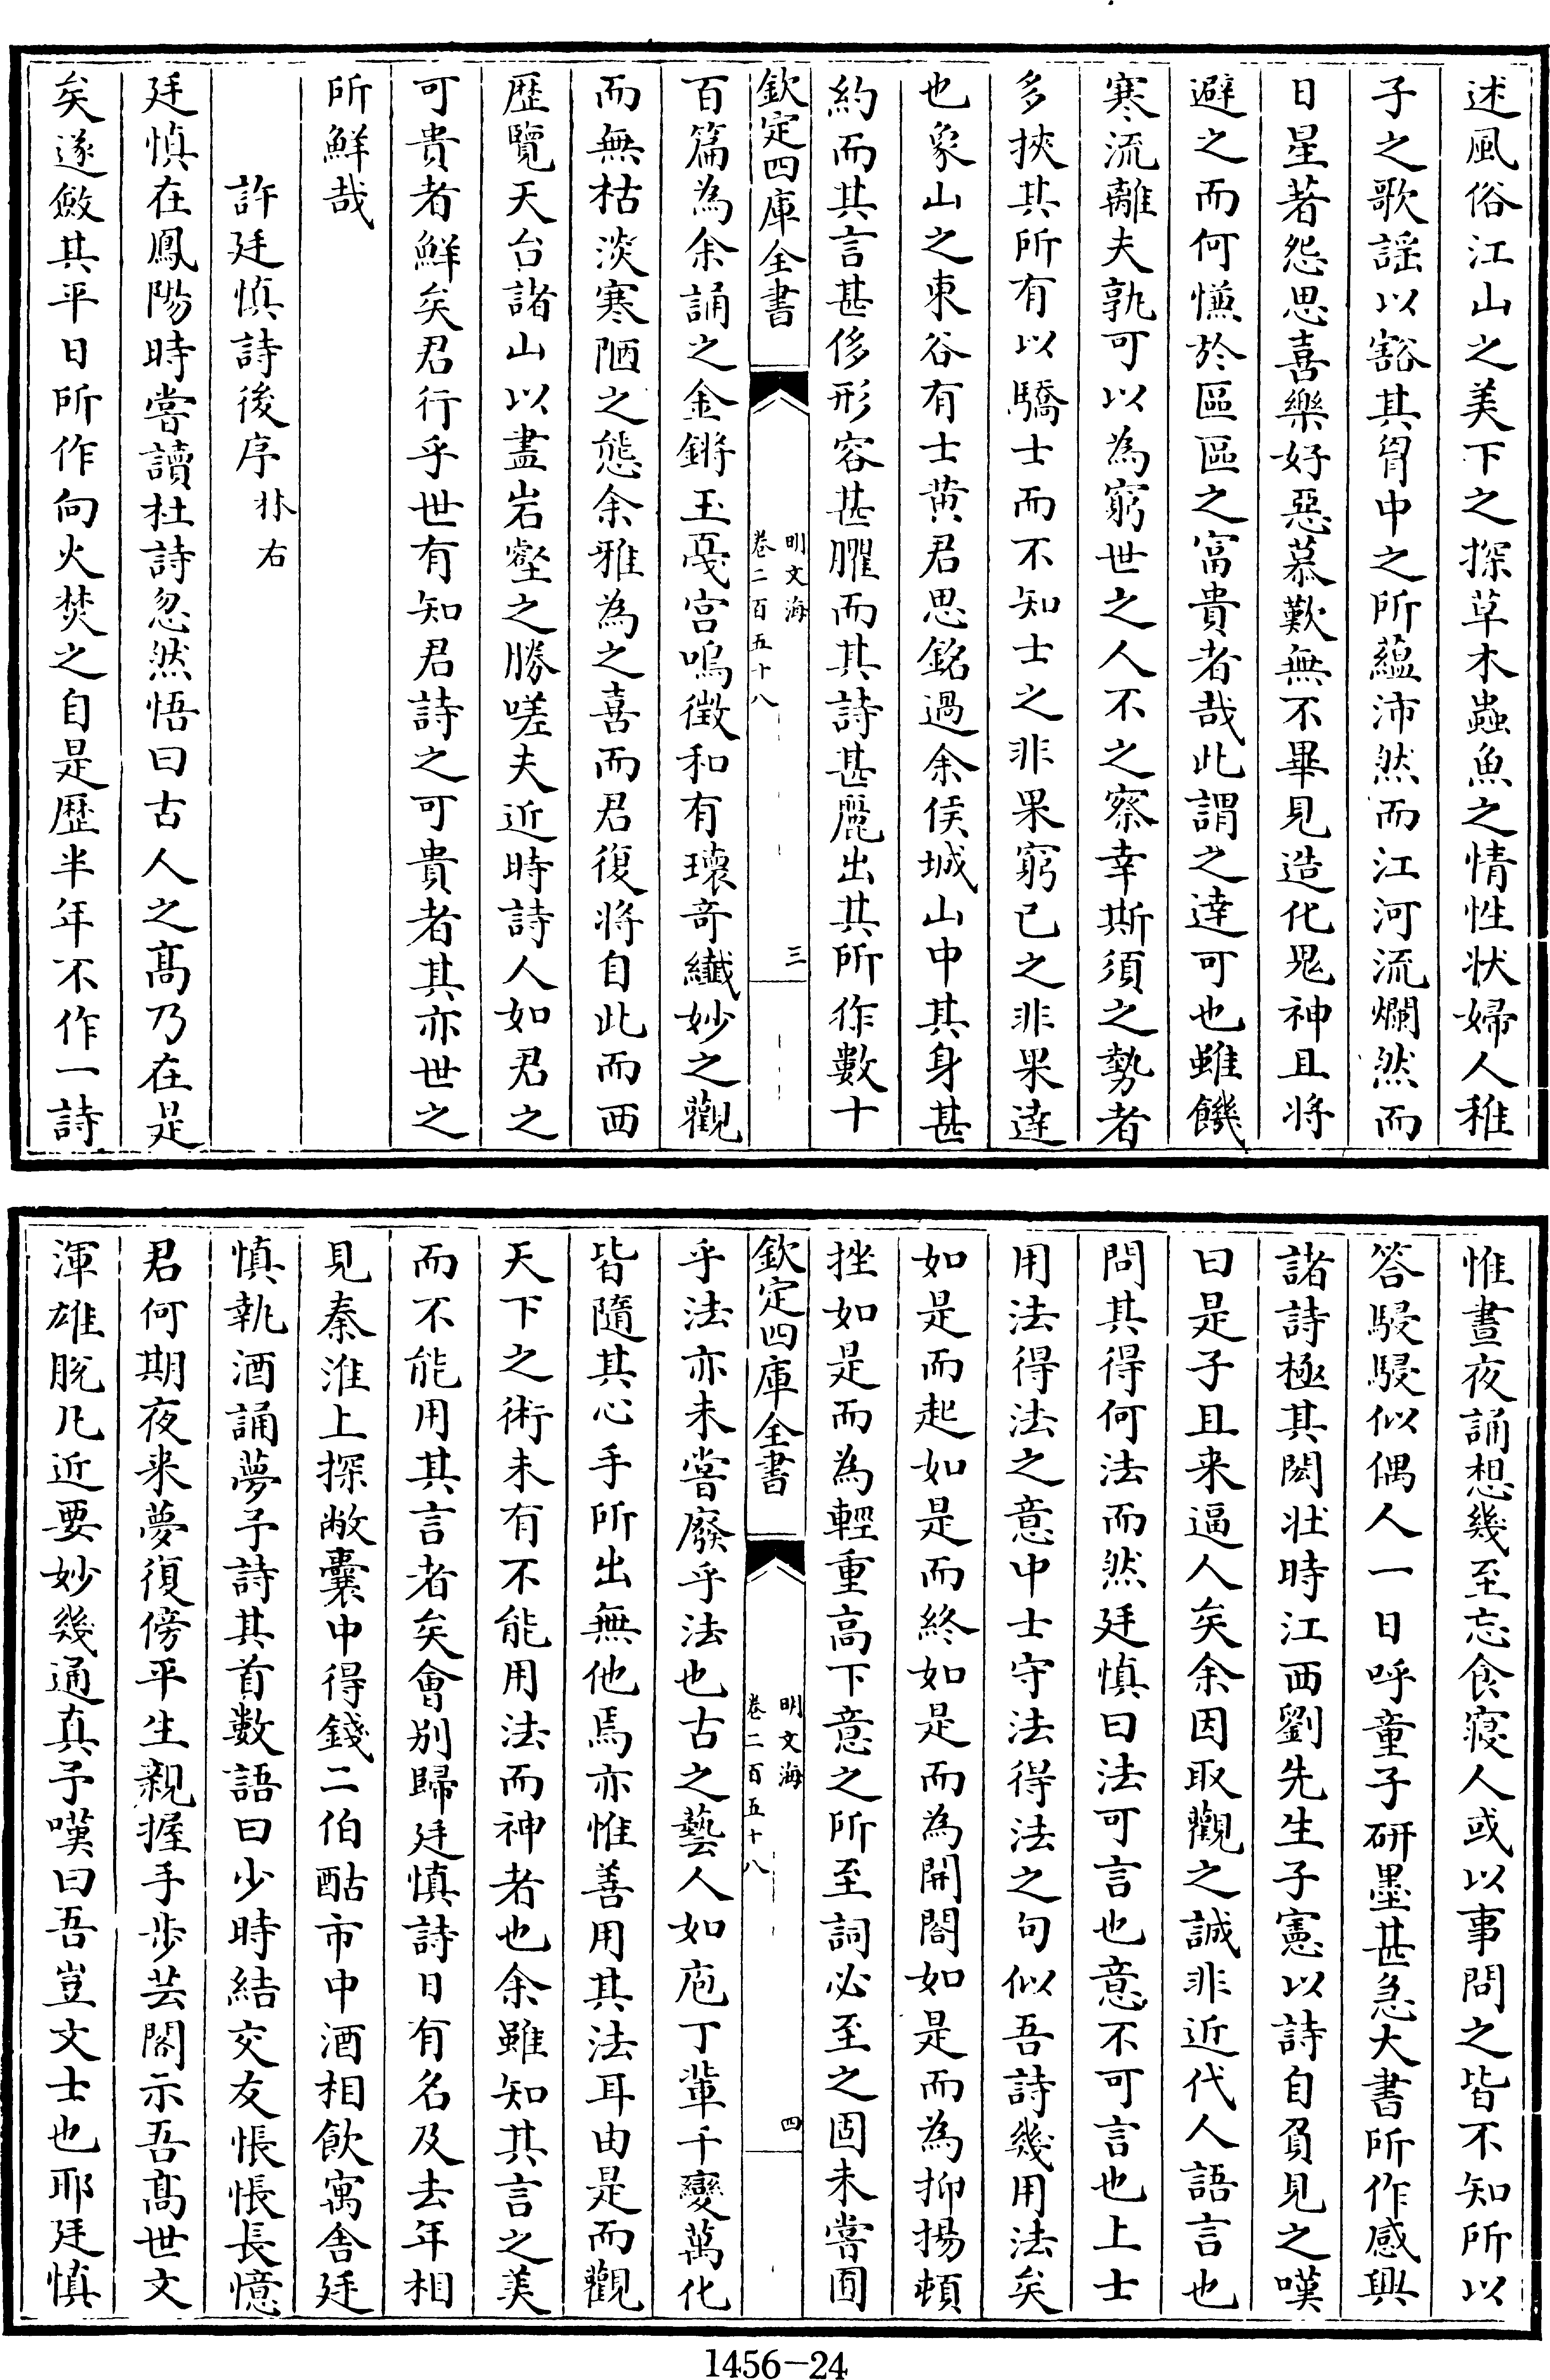 述風俗江山之美下之探草木蟲魚之情性狀婦人稚
子之歌謡以豁其胷中之所蘊沛然而江河流爛然而
日星著怨思喜樂好惡慕歎無不畢見造化鬼神且将
避之而何慊於區區之富貴者哉此謂之達可也雖饑
寒流離夫孰可以為窮世之人不之察幸斯須之勢者
多挾其所有以驕士而不知士之非果窮已之非果達
也象山之東谷有士黄君思銘過余侯城山中其身甚
約而其言甚侈形容甚臞而其詩甚麗出其所作數十
欽定四庫全書
明文海
卷二百五十八
三
百篇為余誦之金鏘玉戛宫鳴徴和有瓌竒纎妙之觀
而無枯淡寒陋之態余雅為之喜而君復将自此而西
歴覽天台諸山以盡岩壑之勝嗟夫近時詩人如君之
可貴者鮮矣君行乎世有知君詩之可貴者其亦世之
所鮮哉
許廷慎詩後序林右
廷慎在鳳陽時嘗讀杜詩忽然悟曰古人之髙乃在是
矣遂斂其平日所作向火焚之自是歴半年不作一詩
惟晝夜誦想幾至忘食寢人或以事問之皆不知所以
答駸駸似偶人一日呼童子研墨甚急大書所作感興
諸詩極其閎壯時江西劉先生子憲以詩自負見之嘆
曰是子且来逼人矣余因取觀之誠非近代人語言也
問其得何法而然廷慎曰法可言也意不可言也上士
用法得法之意中士守法得法之句似吾詩幾用法矣
如是而起如是而終如是而為開闔如是而為抑揚頓
挫如是而為輕重高下意之所至詞必至之固未嘗囿
欽定四庫全書
明文海
卷二百五十八
四
乎法亦未嘗廢乎法也古之藝人如庖丁輩千變萬化
皆隨其心手所出無他焉亦惟善用其法耳由是而觀
天下之術未有不能用法而神者也余雖知其言之美
而不能用其言者矣會别歸廷慎詩日有名及去年相
見秦淮上探敝囊中得錢二伯酤市中酒相飲寓舍廷
慎執酒誦夢予詩其首數語曰少時結交友悵悵長憶
君何期夜来夢復傍平生親握手步芸閣示吾髙世文
渾雄脱凡近要妙幾通真予嘆曰吾豈文士也耶廷慎
1456-24